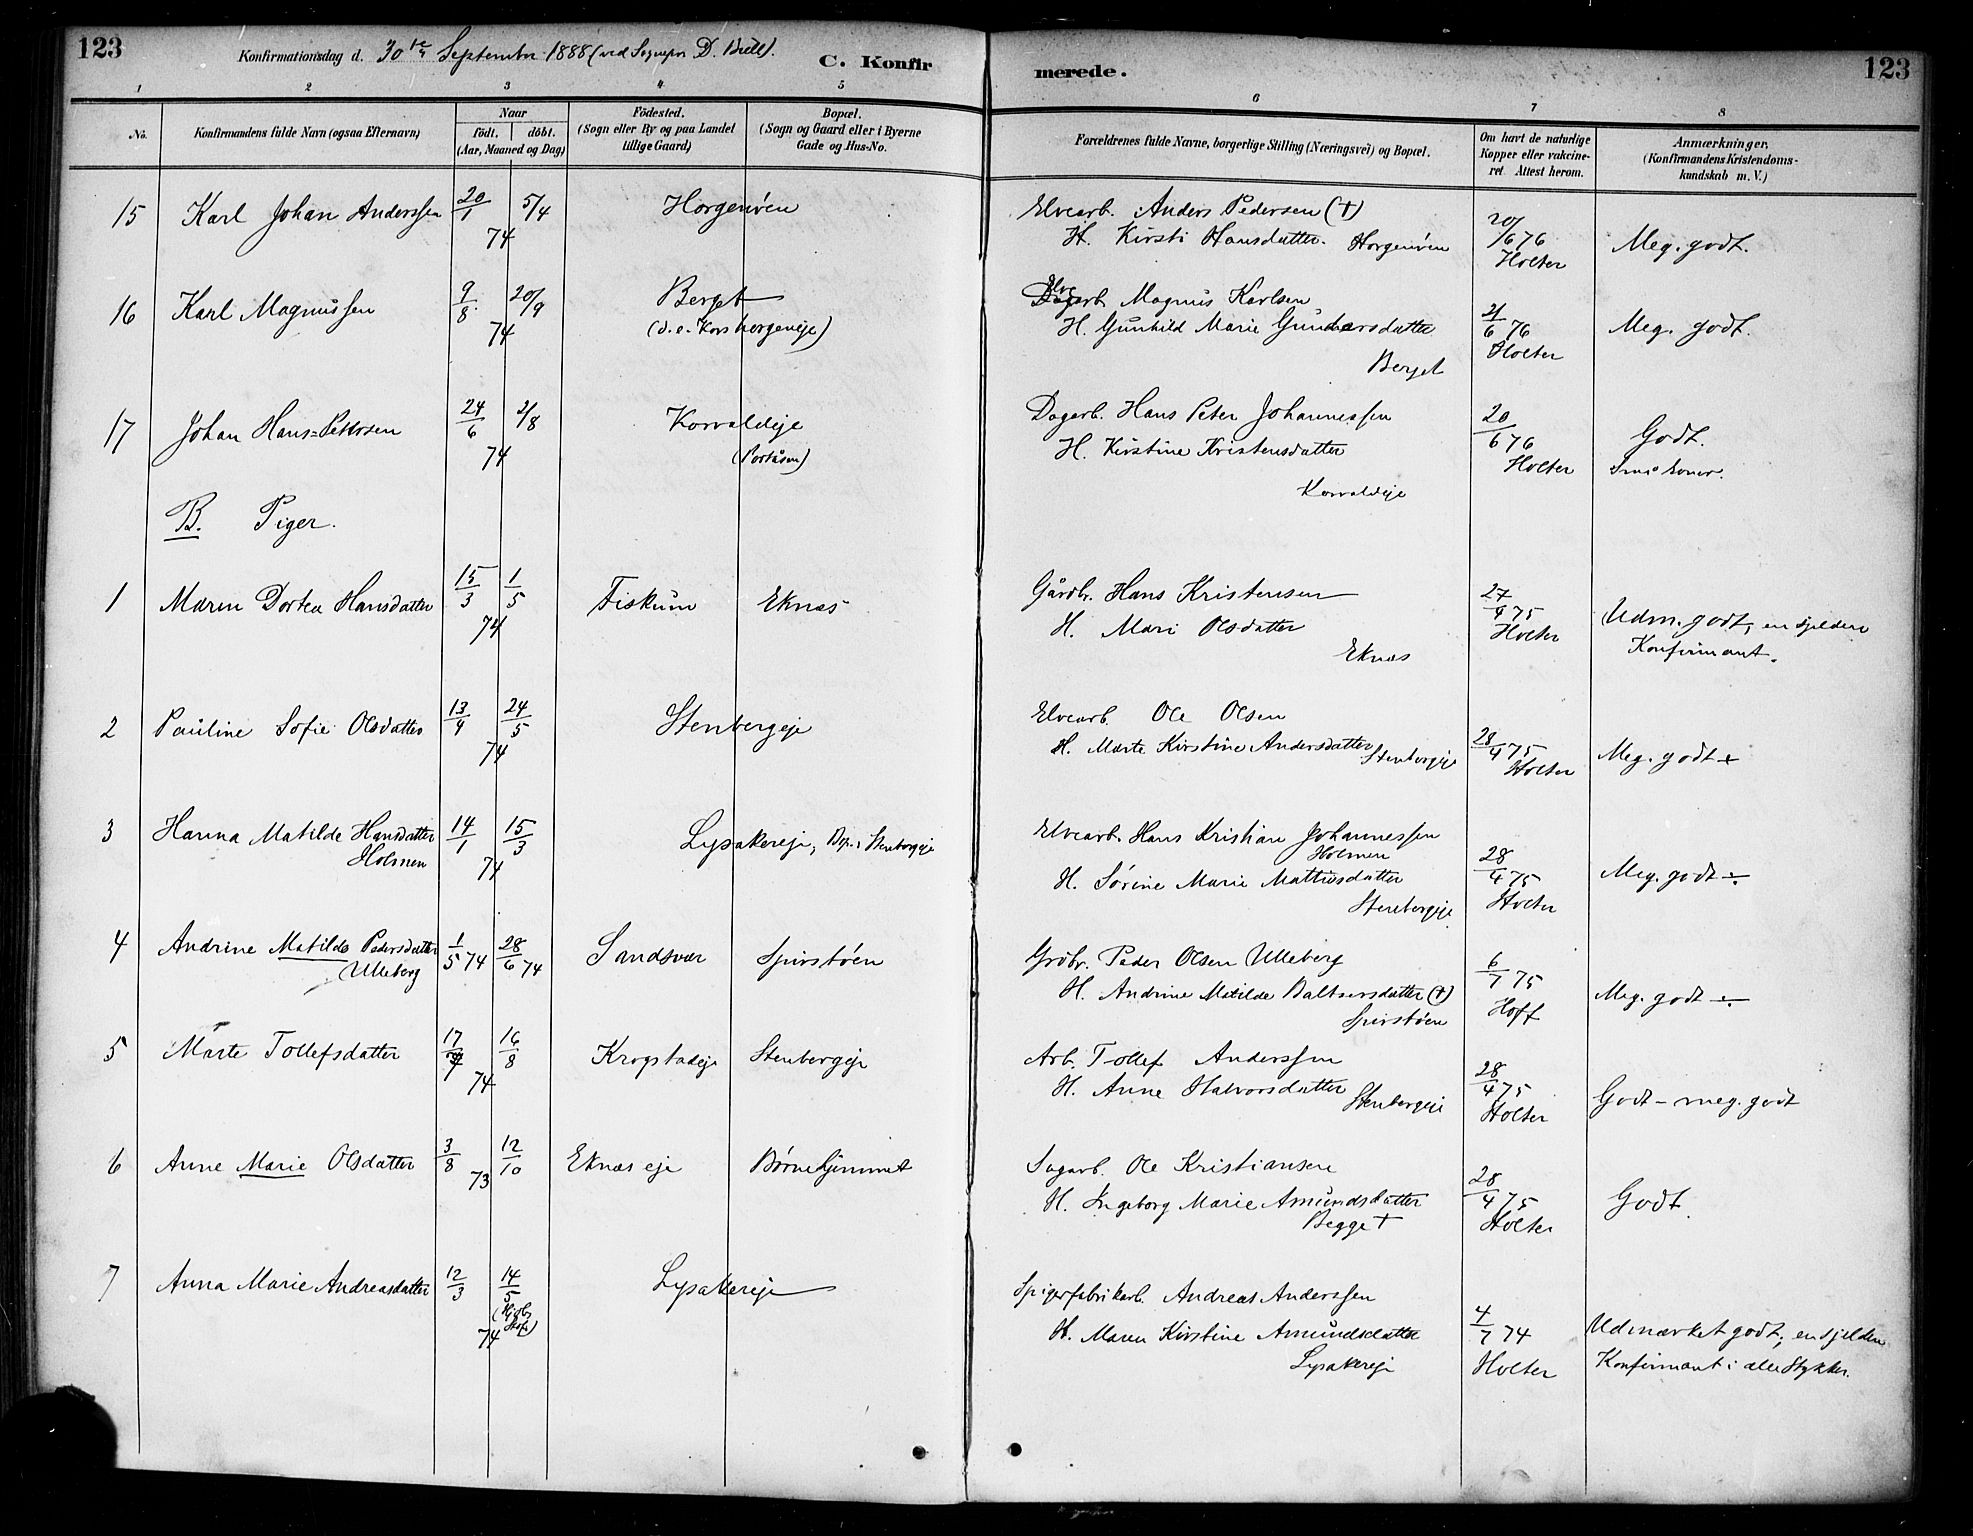 123
Konfirmationsdag d. 30te September 1888 (ved Sognepr. D. Buell).
C. Konfir
merede.
123
1 2 3 4 5 6 7 8
No.
Konfirmandens fulde Navn (ogsaa Efternavn)
Naar
födt. döbt.
(Aar, Maaned og Dag)
Födested.
(Sogn eller By og paa Landet
tillige Gaard)
Bopæl.
(Sogn og Gaard eller i Byerne
Gade og Hus-No.
Forældrenes fulde Navne, borgerlige Stilling (Næringsvei) og Bopæl.
Om havt de naturlige
Kopper eller vakcine-
ret Attest herom.
Anmærkninger.
(Konfirmandens Kristendoms-
kundskab m. V.)
15 Karl Johan Anderssen 20/1 5/4 Horgenöen Elvearb. Anders Pedersen (†) 20/6 76
74 H. Kirsti Hansdatter. Horgenöen Holter Meg. godt.
16 Karl Magnussen 9/8 20/9 Berget Elve Dagarb. Magnus Karlsen 21/6 76
74 (d. e. Korshorgeneje) H. Gunhild Marie Gundersdatter Holter Meg. godt.
Berget
17 Johan Hans=Petersen 24/6 2/8 Korvaldeje Dagarb. Hans Peter Johannessen 20/6 76 Godt.
74 (Portåsen) H. Kirstine Kristensdatter Holter
Korvaldeje
B. Piger.
1 Maren Dortea Hansdatter 15/3 1/5 Fiskum Eknæs Gårdbr. Hans Kristensen 27/4 75
74 H. Mari Olsdatter Holter Udm. godt, en sjelden
Eknæs Konfirmant.
2 Pauline Sofie Olsdatter 13/4 24/5 Stenbergeje Elvearb. Ole Olsen
74 H. Marte Kirstine Andersdatter Stenbergeje 28/4 75 Holter Meg. godt +
3 Hanna Matilde Hansdatter 14/1 15/3 Lysakereje, Bop. i Stenbergeje Elvearb. Hans Kristian Johannessen
Holmen 74 Holmen 28/4 75
H. Sörine Marie Mathiasdatter Holter Meg. godt ÷.
Stenbergeje
4 Andrine Matilde Pedersdatter 1/5 74 28/6 74 Sandsvær Spirstöen Grdbr. Peder Olsen Ulleberg 6/7 75
Ulleberg H. Andrine Matilde Baltsersdatter (†) Hoff Meg. godt ÷.
Spirstöen
5 Marte Tollefsdatter 17/7 16/8 Krogstadeje Stenbergeje Arb. Tollef Anderssen 28/4 75
74 H. Anne Halvorsdatter Stenbergeje Holter Godt - meg. godt
6 Anne Marie Olsdatter 3/8 12/10 Eknæs eje Börnehjemmet Sagarb. Ole Kristiansen 28/4 75
73 H. Ingeborg Marie Amundsdatter Holter Godt.
Begge †
7 Anna Marie Andreasdatter 12/3 14/5 Lysakereje Spigerfabrikarb. Andreas Anderssen 4/7 74
74 H. Maren Kirstine Amundsdatter Udmærket godt; en sjelden
Lysakereje Holter Konfirmant i alle Stykker.